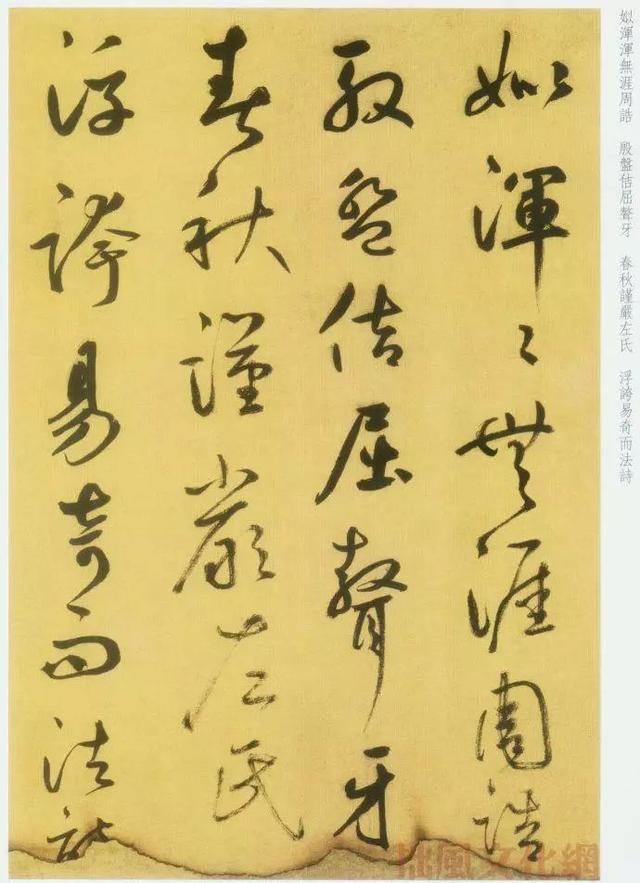 姒渾渾無涯周誥　殷盤佶屈聱牙　春秋謹嚴左氏　浮誇易奇而法詩
姒渾〻無涯周誥
殷盤佶屈聱牙
春秋謹嚴左氏
浮誇易奇而法詩
拙風文化網